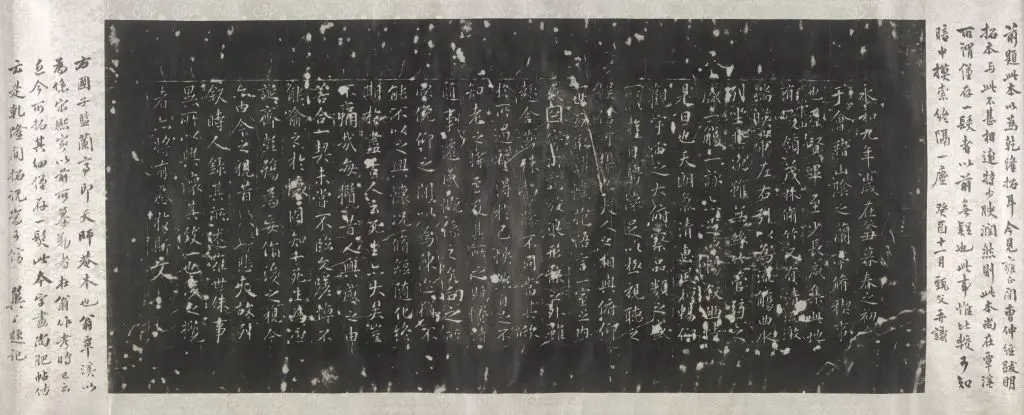 前題此本以為乾隆拓耳今見雍正間曹仲經跋明
拓本與此不甚相遠特少腴潤然則此本尚在覃溪
所謂僅存一髮者以前無疑也此事惟比較可知
暗中摸索終隔一塵 癸酉十一月瓻父再識
永和九年歲在癸丑暮春之初
于會稽山陰之蘭亭脩禊事
也羣賢畢至少長咸集此地
有峻領茂林脩竹又有清流激
湍暎帶左右引以為流觴曲水
列坐其次雖無絲竹管弦之
盛一觴一詠亦足以暢敘幽情
是日也天朗氣清惠風和暢仰
觀宇宙之大俯察品類之盛
所以遊目騁懷足以極視聽之
娛信可樂也夫人之相與俯仰
一世或取諸懷抱悟言一室之內
或因寄所託放浪形骸之外雖
趣舍萬殊靜躁不同當其欣
於所遇蹔得於己快然自足不
知老之將至及其所之既惓情
隨事遷感慨係之矣向之所
欣俛仰之閒以為陳迹猶不
能不以之興懷況脩短隨化終
期於盡古人云死生亦大矣豈
不痛哉每攬昔人興感之由
若合一契未嘗不臨文嗟悼不
能喻之於懷固知一死生為虛
誕齊彭殤為妄作後之視今
亦由今之視昔悲夫故列
敘時人錄其所述雖世殊事
異所以興懷其致一也後之攬
者亦將有感於斯文
右國子監蘭亭即天師菴本也翁覃溪以
為係宋熙寧以前所摹勒者在翁作考時已云
在今所拓其細僅存一髮此本字畫尚肥帖估
云是乾隆間拓說當可信 翼盦題記